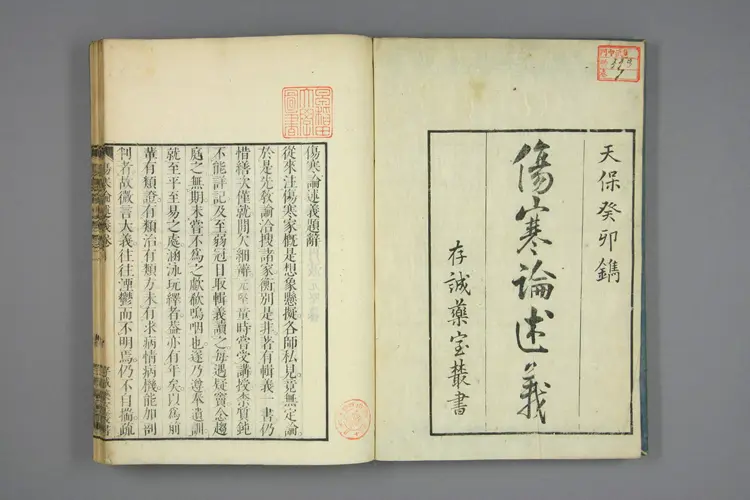 天保癸卯鐫
傷寒論述義
存誠藥室叢書
傷寒論述義題辭
從來注傷寒家慨是想象懸擬各師私見竟無定論
於是先敎諭洽搜諸家衡別是非著有輯義一書仍
惜繕次僅就間欠細辨元堅童時嘗受講授柰質鈍
不能詳記及至弱冠日取輯義讀之每遇疑竇念趨
庭之無期未嘗不爲之歔欷嗚咽也遂乃遵奉遺訓
就至平至易之處涵泳玩繹者蓋亦有年矣以爲前
輩有類證有類治有類方未有求病情病機能加剖
判者故微言大義往往湮鬱而不明焉仍不自揣疏